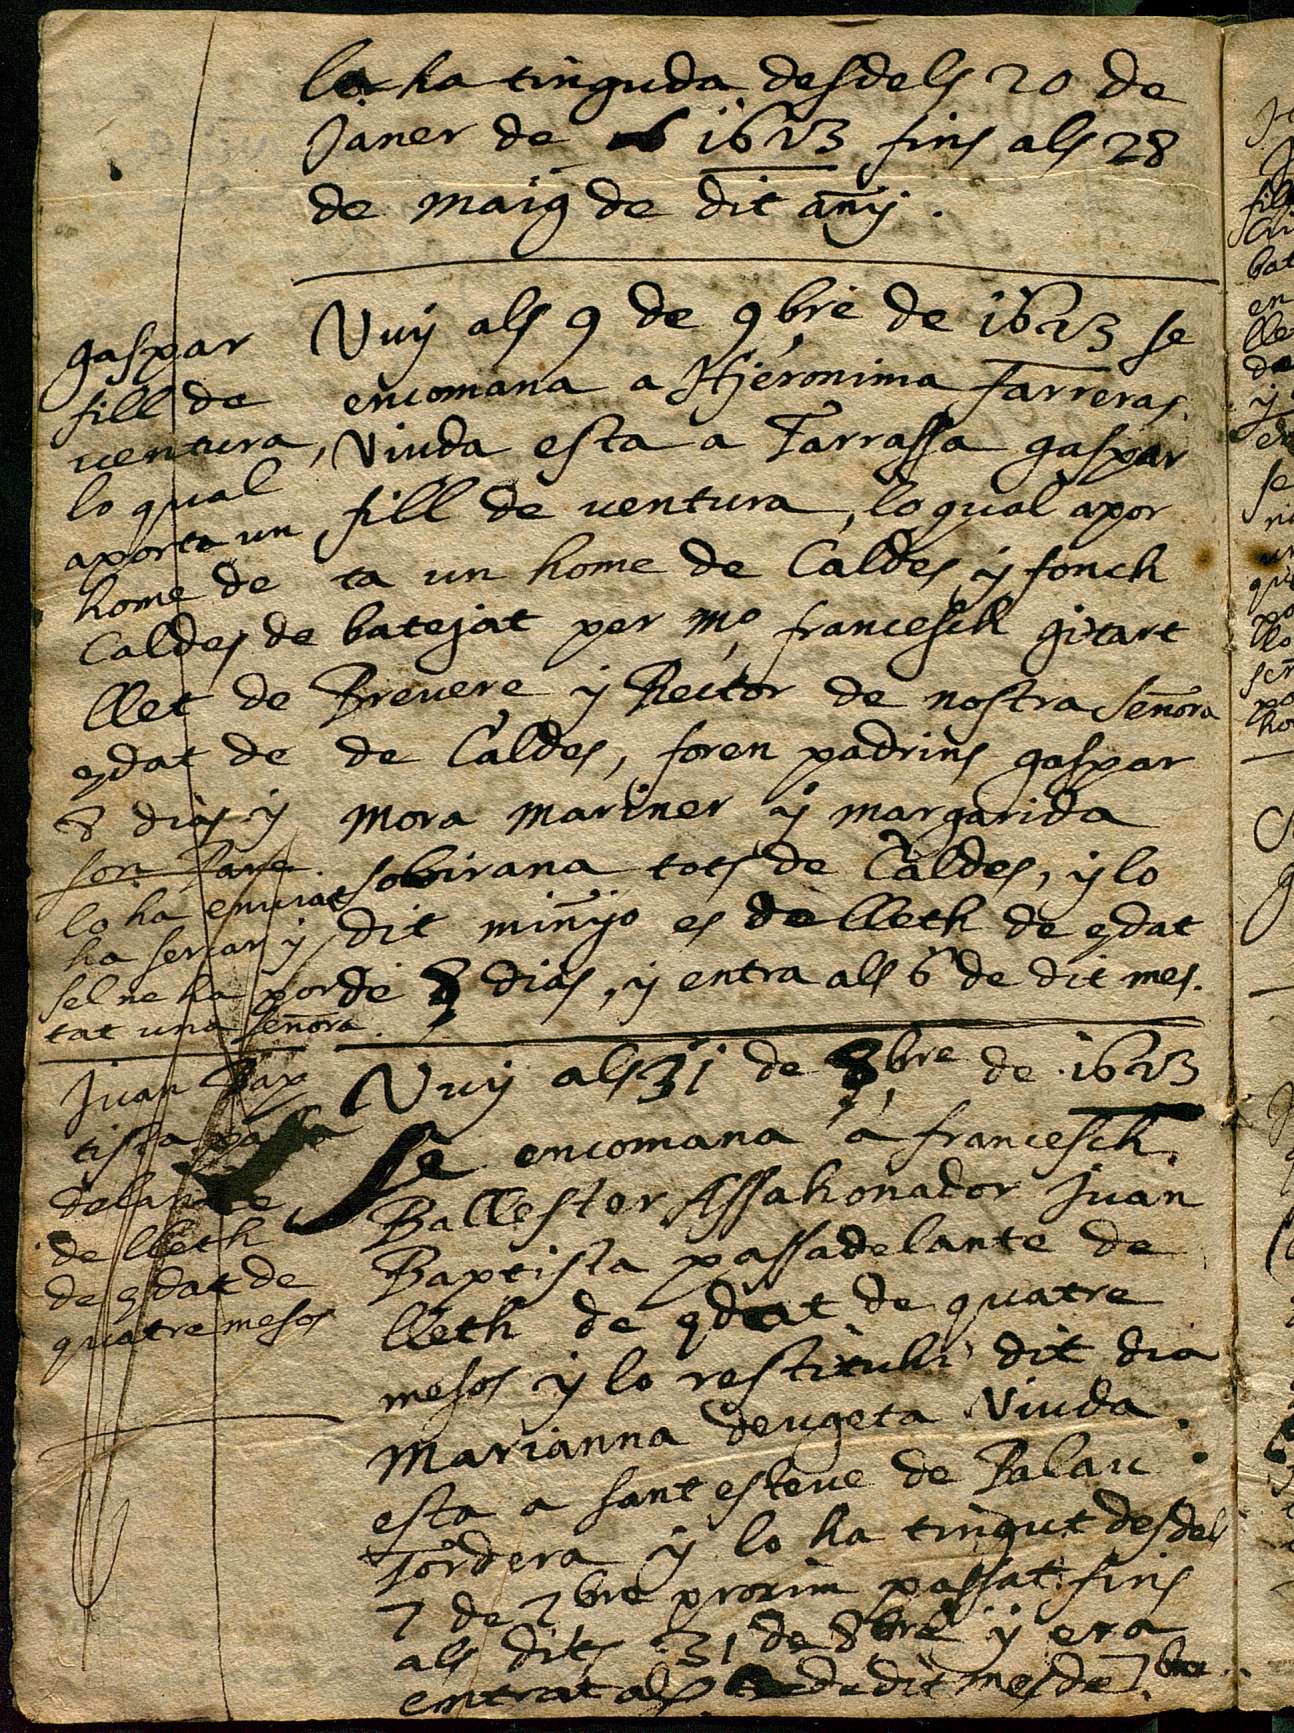 la ha tinguda desdels 20 de
Janer de 1623 fins als 28
de maig de dit añy.
gaspar
fill de
ventura,
lo qual
aporta un
home de
Caldes de
llet de
edat de
8 dias y
son Pare
lo ha enviat
ha sercar y
sel ne ha por
tat una señora.
Vuy als 9 de 9bre de 1623 se
encomana a Hjeronima Farreras
Viuda esta a Tarrassa gaspar
fill de ventura, lo qual apor
ta un home de Caldes y fonch
batejat per mo, francesch gitart
Prevere y Rector de nostra señora
de Caldes, foren padrins gaspar
mora mariner y margarida
sobirana tots de Caldes, y lo
dit miñyo es de lleth de edat
de 8 dias, y entra als 6 de dit mes.
Juan Bap
tista passa
delante
de lleth
de edat de
quatre mesos
Vuy als 31 de 8bre de 1623
se encomana a francesch
Ballester Assahonador Juan
Baptista passadelante de
lleth de edat de quatre
mesos y lo restituhi dit dia
Marianna deugeta Viuda
esta a sant esteve de Palau
Tordera y lo ha tingut desdel
7 de 7bre proxim passat fins
als dits 31 de 8bre y era
entrat als de dit mes de 7bre.